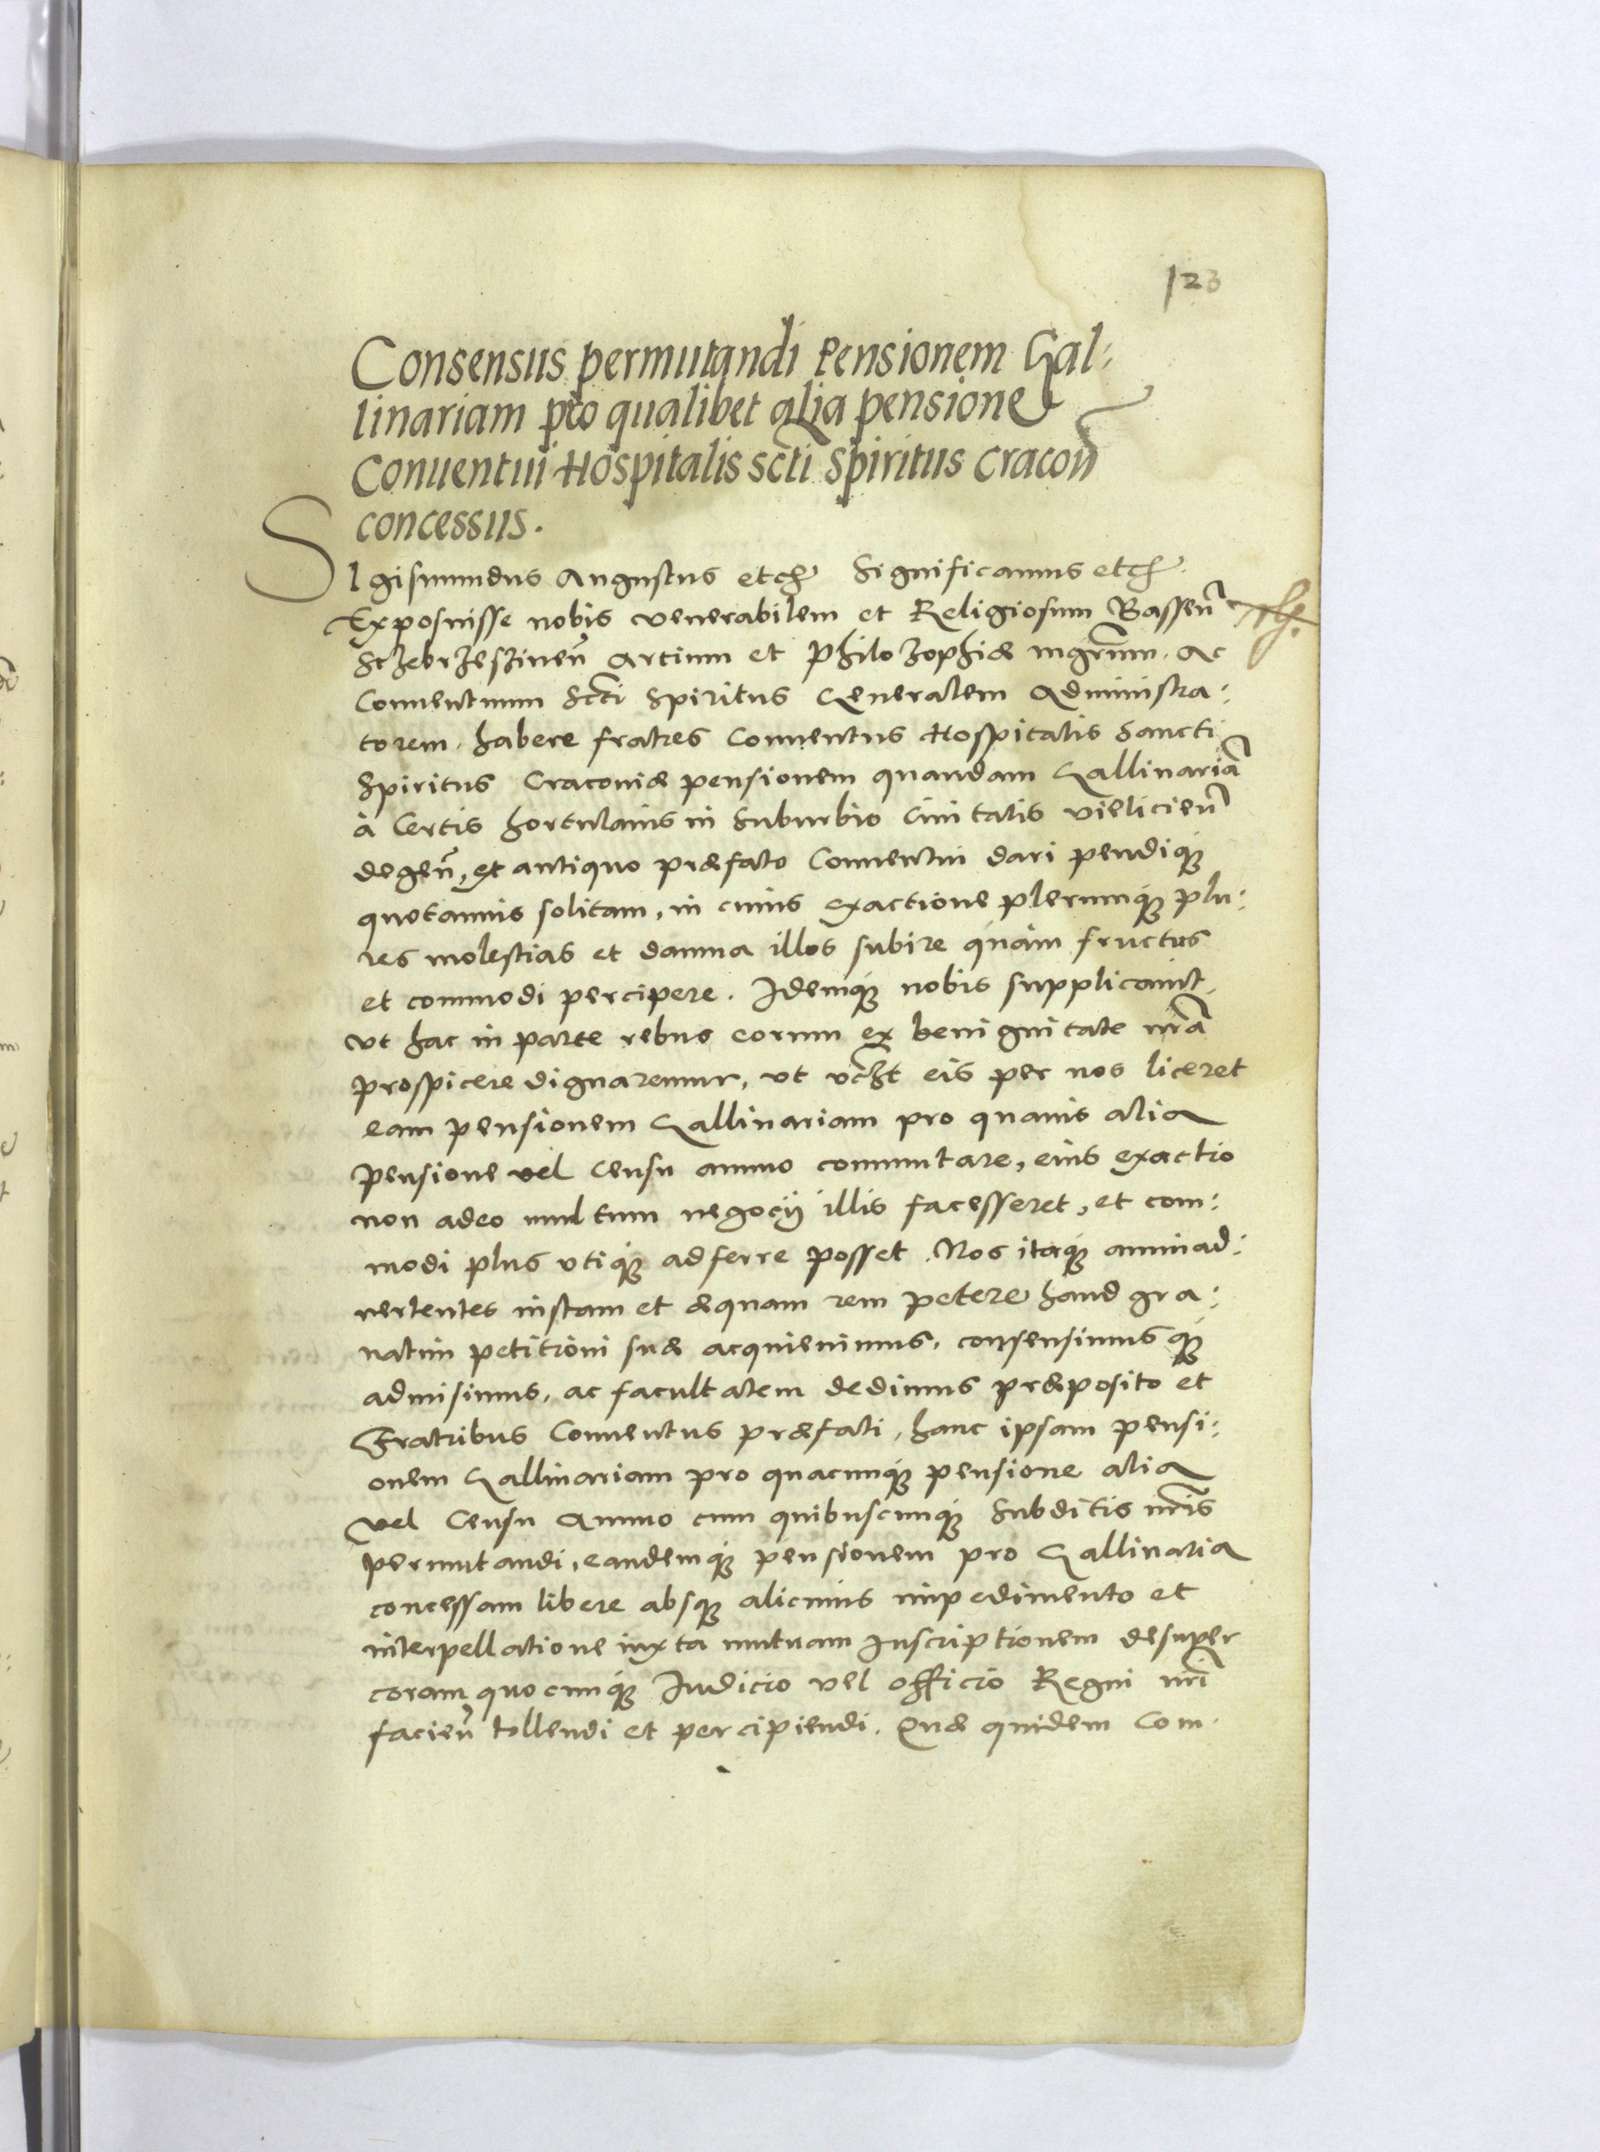 123
Consensus permutandi Pensionem Gal-
linariam pro qualibet alia pensione
Conuentui Hospitalis scti Spiritus Cracoñ
concessus.
SIgismundus Augustus etc Significamus etc
Exposuisse nobis venerabilem et Religiosum
Sczebrzeszineñ Artium et Philozophiæ mgrum. Ac
Conuentuum Scti Spiritus Generalem Administra:
torem. habere fratres Conuentus Hospitalis Sancti
Spiritus Cracouiæ pensionem quandam Gallinariã
à Certis hortulanis in suburbio Ciuitatis vielicieñ
degeñ, et antiquo præfato Conuentui dari pendiq
quotannis solitam, in cuius exactione plerumq plu:
res molestias et damna illos subire quàm fructus
et commodi percipere. Idemq nobis supplicauit,
vt hac in parte rebus eorum ex benignitate nrã
prospicere dignaremur, vt vczt eis per nos liceret
eam pensionem Gallinariam pro quauis alia
pensione vel Censu annuo commutare, eius exactio
non adeo multum negocij illis facesseret, et com:
modi plus vtiq adferre posset. Nos itaq animad:
uertentes iustam et æquam rem petere haud gra:
uatim petitioni suæ acquieuimus, consensimusq
admisimus, ac facultatem dedimus præposito et
Fratribus Conuentus præfati, hanc ipsam pensi:
onem Gallinariam pro quacunq pensione alia
vel Censu Annuo cum quibuscunq Subditis nris
permutandi, eandemq pensionem pro Gallinaria
concessam libere absq alicuius impedimento et
interpellatione iuxta mutuam Inscriptionem desuper
coram quocunq Iudicio vel officio Regni nri
facieñ tollendi et percipiendi. Quæ quidem Com-